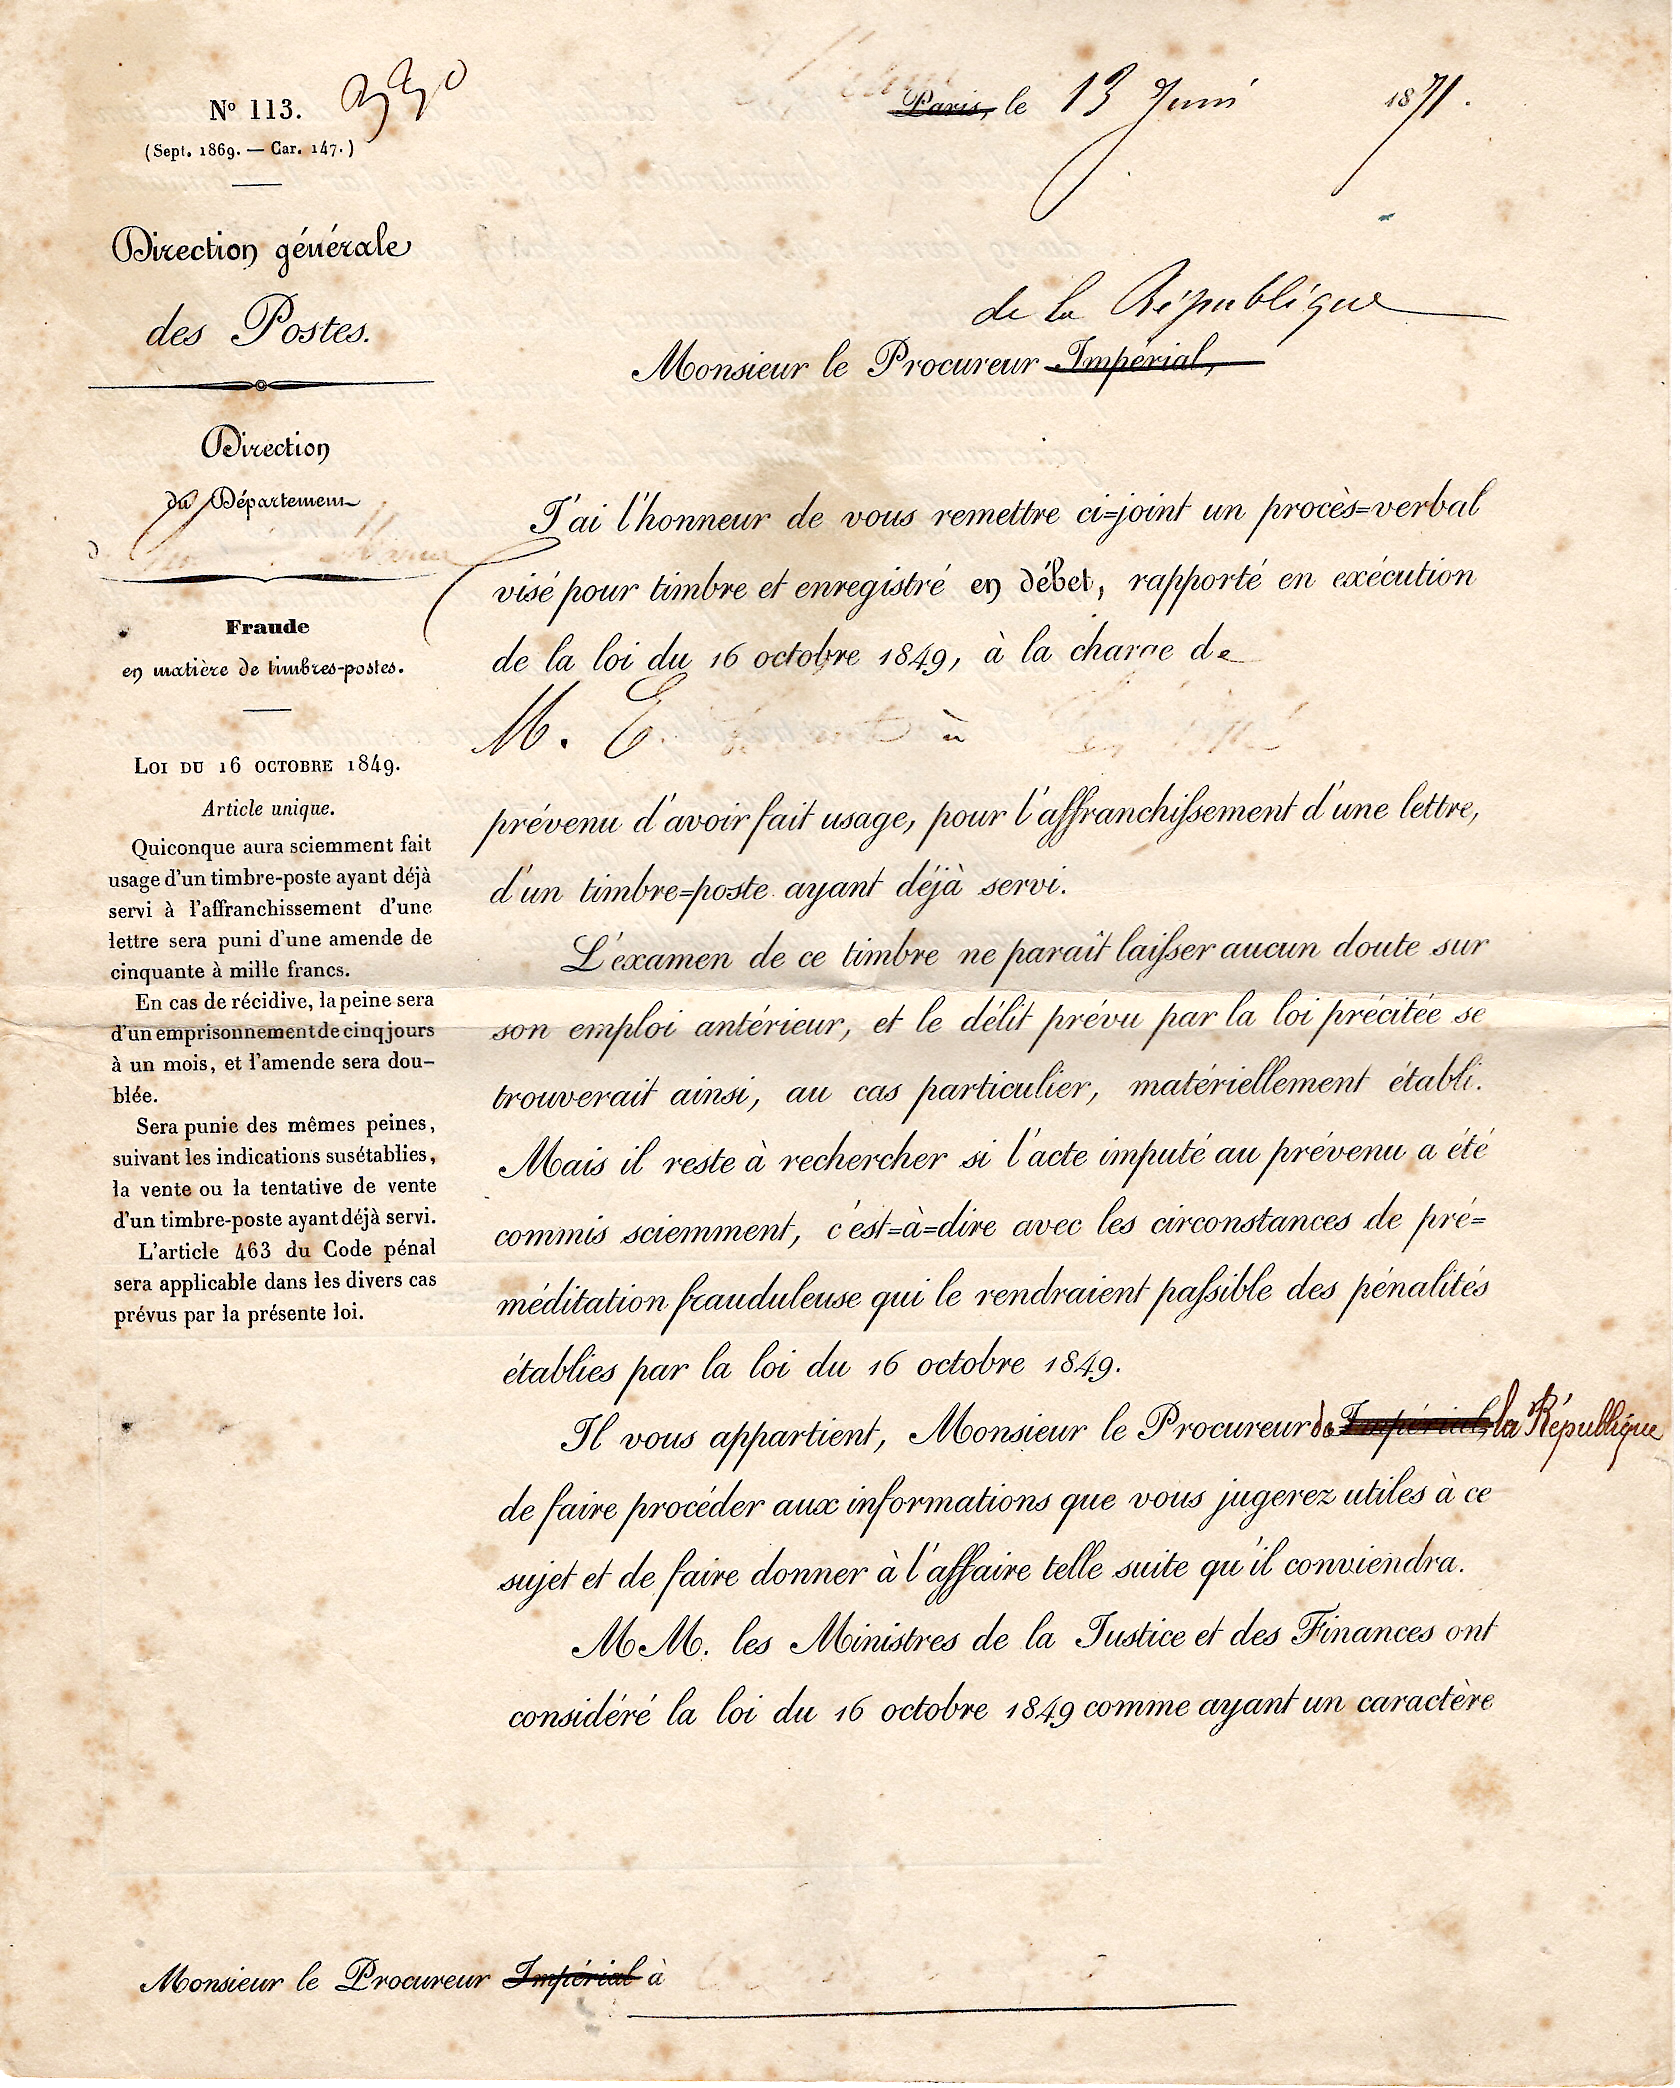 Nº 113.
(Sept. 1869. — Car. 147.)
Direction générale
des Postes.
Direction
du Département
Fraude
en matière de timbres-postes.
LOI DU 16 OCTOBRE 1849.
Article unique.
Quiconque aura sciemment fait
usage d'un timbre-poste ayant déjà
servi à l'affranchissement d'une
lettre sera puni d'une amende de
cinquante à mille francs.
En cas de récidive, la peine sera
d'un emprisonnement de cinq jours
à un mois, et l'amende sera dou-
blée.
Sera punie des mêmes peines,
suivant les indications susétablies,
la vente ou la tentative de vente
d'un timbre-poste ayant déjà servi.
L'article 463 du Code pénal
sera applicable dans les divers cas
prévus par la présente loi.
Paris, le 13 Juin 1871.
de la République
Monsieur le Procureur Impérial,
J'ai l'honneur de vous remettre ci=joint un procès=verbal
visé pour timbre et enregistré en débet, rapporté en exécution
de la loi du 16 octobre 1849, à la charge de
M. E. à
prévenu d'avoir fait usage, pour l'affranchissement d'une lettre,
d'un timbre=poste ayant déjà servi.
L'examen de ce timbre ne paraît laisser aucun doute sur
son emploi antérieur, et le délit prévu par la loi précitée se
trouverait ainsi, au cas particulier, matériellement établi.
Mais il reste à rechercher si l'acte imputé au prévenu a été
commis sciemment, c'est=à=dire avec les circonstances de pré=
méditation frauduleuse qui le rendraient passible des pénalités
établies par la loi du 16 octobre 1849.
Il vous appartient, Monsieur le Procureur de Impérial, la République
de faire procéder aux informations que vous jugerez utiles à ce
sujet et de faire donner à l'affaire telle suite qu'il conviendra.
MM. les Ministres de la Justice et des Finances ont
considéré la loi du 16 octobre 1849 comme ayant un caractère
Monsieur le Procureur Impérial à